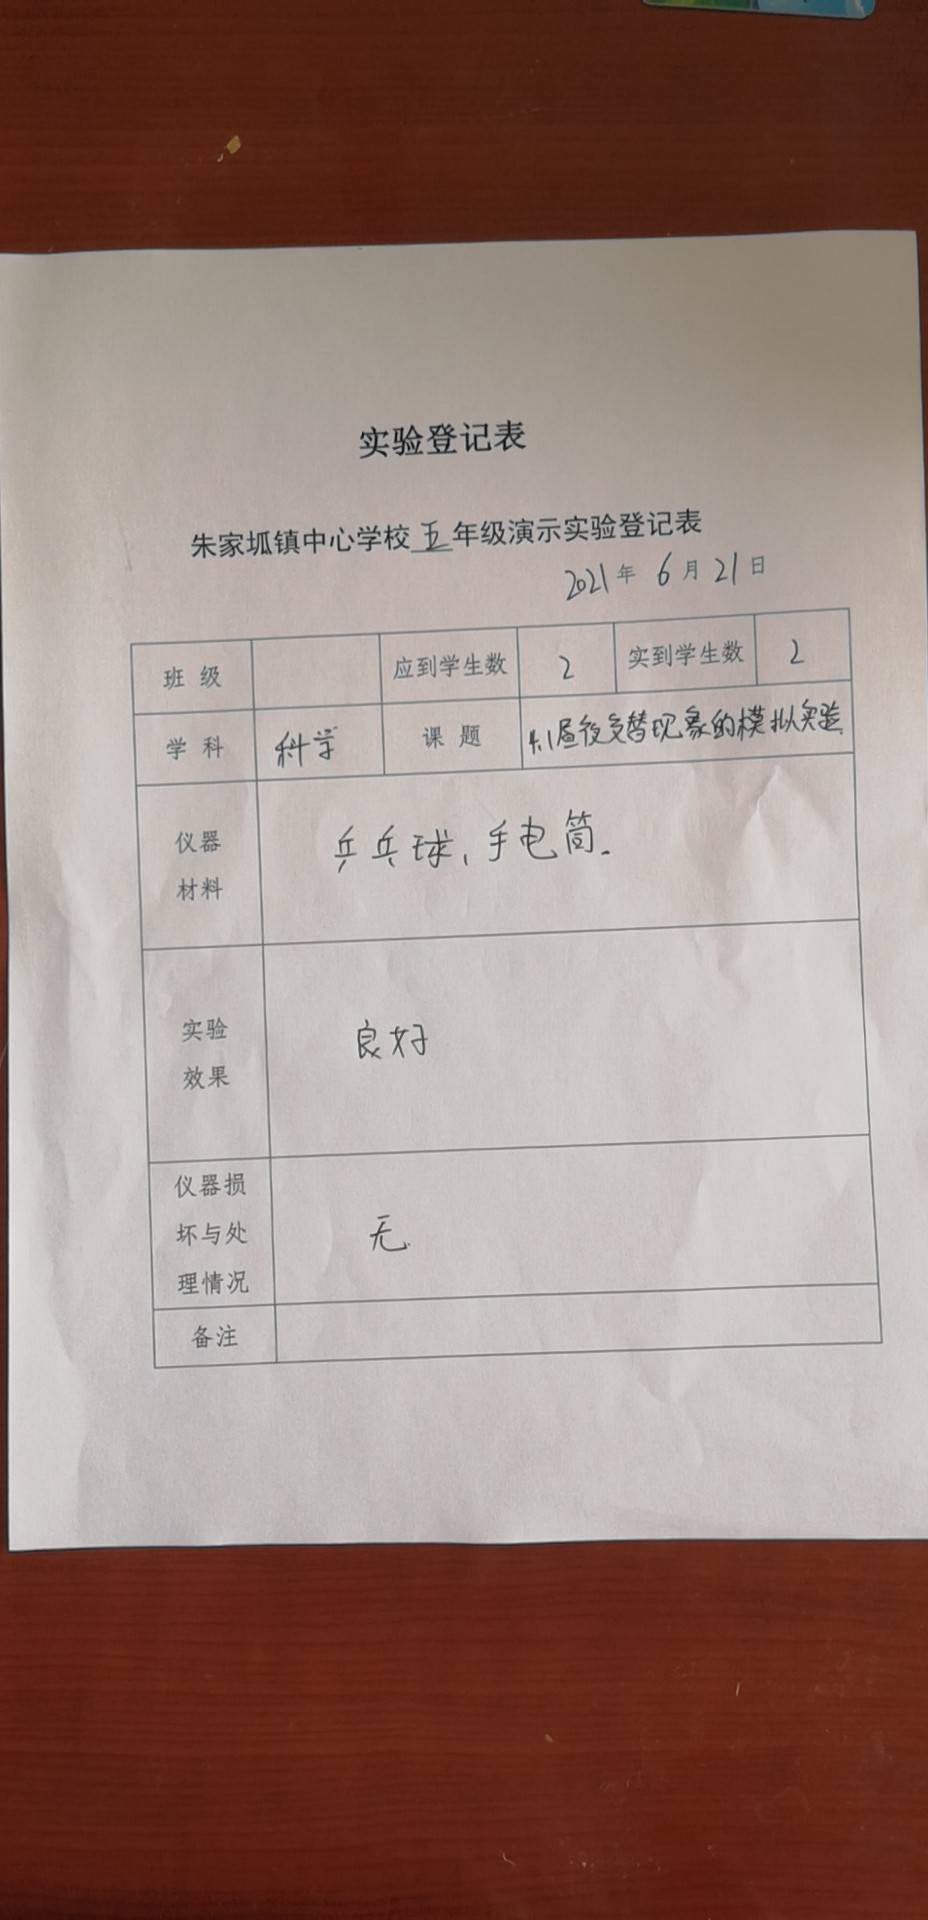 实验登记表
朱家坬镇中心学校五年级演示实验登记表
2021年6月21日
班级 应到学生数 2 实到学生数 2
学科 科学 课题 4.1昼夜交替现象的模拟实验
仪器
材料
乒乓球、手电筒.
实验
效果
良好
仪器损
坏与处
理情况
无.
备注